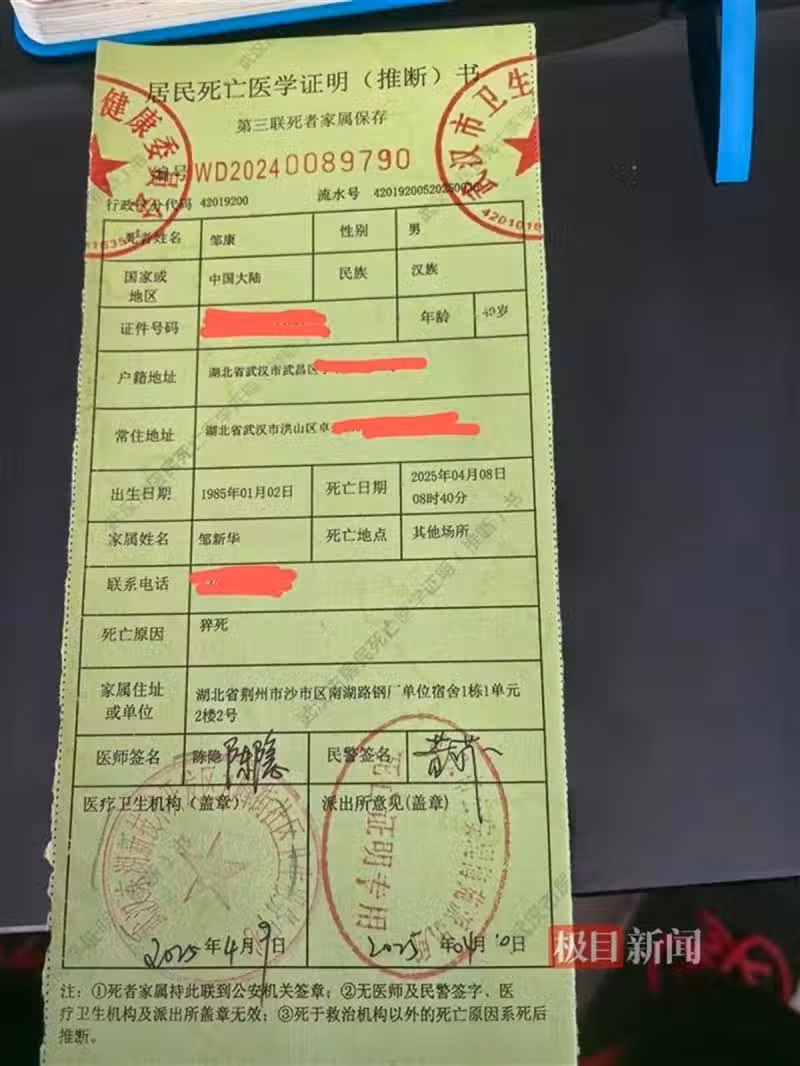 居民死亡医学证明（推断）书
第三联死者家属保存
编号 WD2024 0089790
行政区划代码 42019200 流水号 42019200520250
死者姓名 邹康 性别 男
国家或地区 中国大陆 民族 汉族
证件号码 年龄 40岁
户籍地址 湖北省武汉市武昌区
常住地址 湖北省武汉市洪山区卓
出生日期 1985年01月02日 死亡日期 2025年04月08日
08时40分
家属姓名 邹新华 死亡地点 其他场所
联系电话
死亡原因 猝死
家属住址或单位 湖北省荆州市沙市区南湖路钢厂单位宿舍1栋1单元
2楼2号
医师签名 陈隐 陈隐 民警签名
医疗卫生机构（盖章） 派出所意见(盖章)
2025年4月9日 2025年04月10日
注：①死者家属持此联到公安机关签章；②无医师及民警签字、医
疗卫生机构及派出所盖章无效；③死于救治机构以外的死亡原因系死后
推断。
健康委员会
武汉市卫生
死亡证明专用
极目新闻